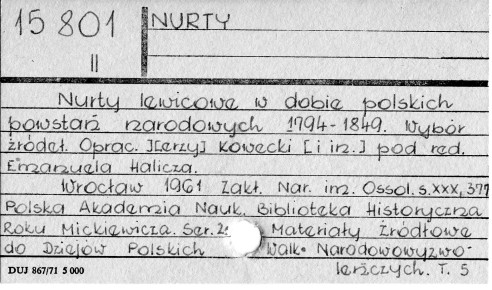 15 801
II
NURTY
Nurty lewicowe w dobie polskich
powstań narodowych 1794-1849. Wybór
źródeł. Oprac. J[erzy] Kowecki [i in.] pod red.
Emanuela Halicza.
Wrocław 1961 Zakł. Nar. im. Ossol. s. XXX, 377
Polska Akademia Nauk. Biblioteka Historyczna
Roku Mickiewicza. Ser. Materiały Źródłowe
do Dziejów Polskich Walk Narodowowyzwo-
leńczych. T. 5
DUJ 867/71 5 000